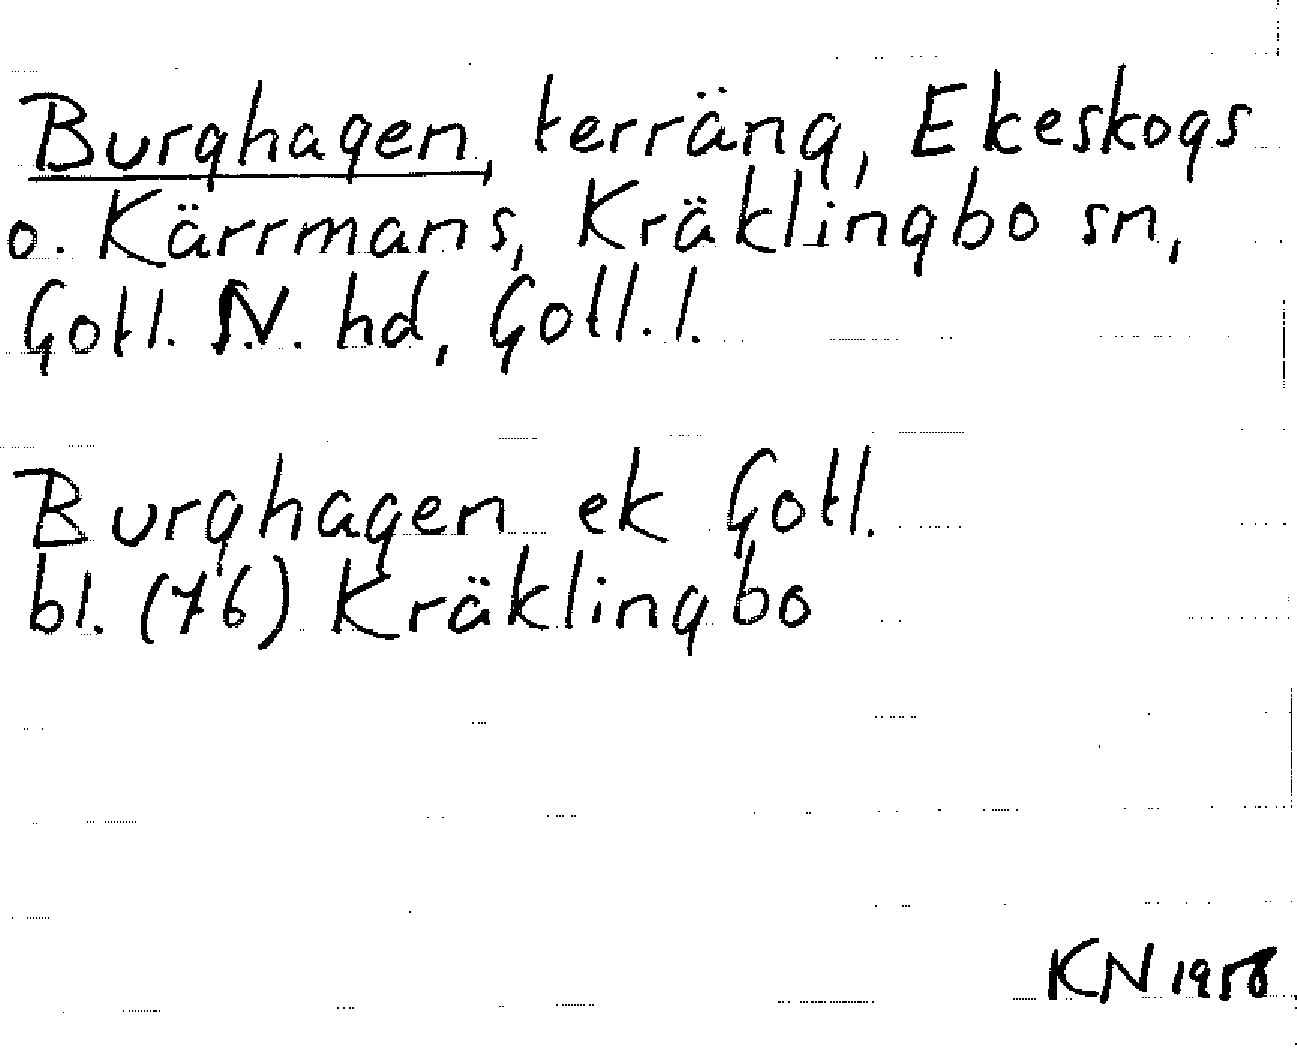 Burghagen, terräng, Ekeskogs
o. Kärrmans, Kräklingbo sn,
Gotl. N. hd, Gotl. l.
Burghagen ek Gotl.
bl. (76) Kräklingbo
KN 1958